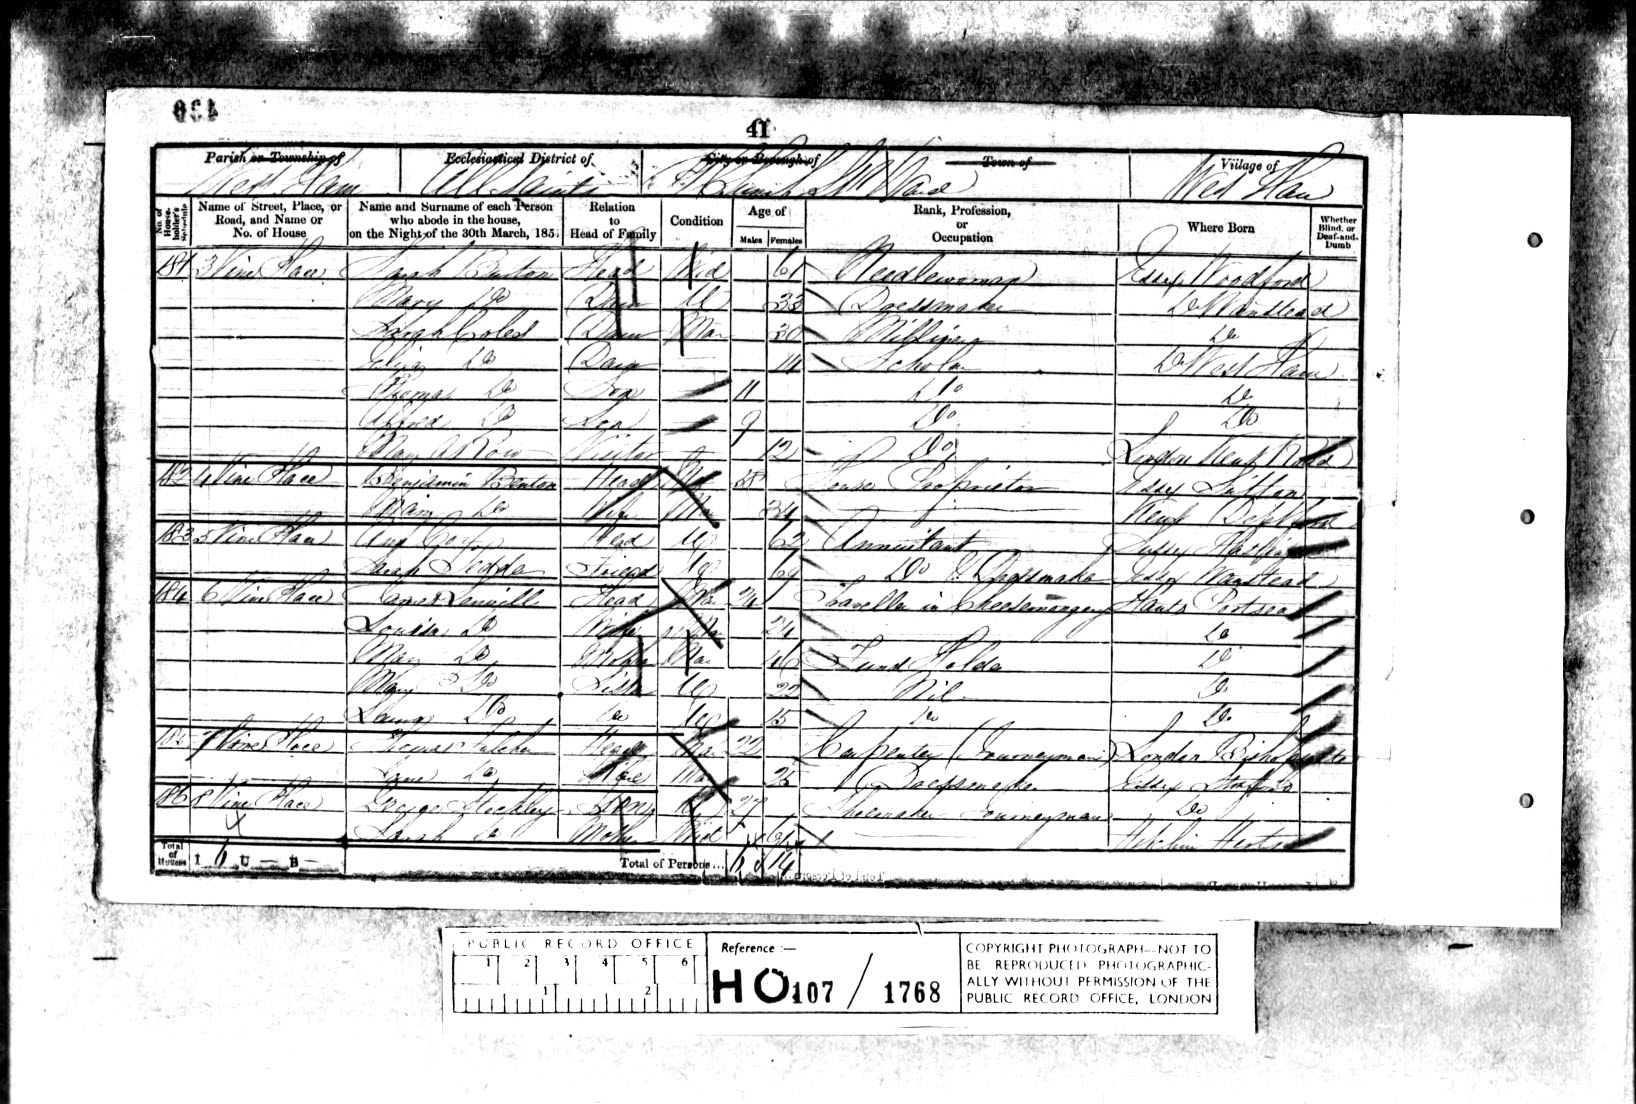 41
Parish or Township of Ecclesiastical District of City or Borough of Town of Village of
West Ham All Saints Church St Ward West Ham
No. of House-holder's Schedule
Name of Street, Place, or Road, and Name or No. of House
Name and Surname of each Person who abode in the house, on the Night of the 30th March, 1851
Relation to Head of Family
Condition
Age of
Males Females
Rank, Profession, or Occupation
Where Born
Whether Blind, or Deaf-and-Dumb
181 3 Vine Place Sarah Burton Head Wid 61 Needlewoman Essex Woodford
Mary Do Daur U 33 Dressmaker Do Wanstead
Sarah Coles Daur Mar 30 Milliner Do
Do Daur 14 Scholar Do West Ham
Thomas Do Son 11 Do Do
Alfred Do Son 9 Do Do
Mary A Row Visitor 12 Do London Kent Road
182 4 Vine Place Benjamin Benton Head Mar 38 House Proprietor Essex
Mary Do Wife Mar 34 Kent Deptford
183 5 Vine Place Ann Head U 62 Annuitant Sussex Hastings
Sarah Friend U 69 Do & Dressmaker Essex Wanstead
184 6 Vine Place James Head Mar 24 Traveller in Cheesemongery Hants Portsea
Louisa Do Wife Mar 24 Do
Mary Do Mother Mar 46 Fund Holder Do
Mary Do Sister U 22 Nil Do
Do Do U 15 Do Do
185 7 Vine Place Thomas Head Mar 22 Carpenter (Journeyman) London Bishopsgate
Jane Do Wife Mar 25 Dressmaker Essex Stratford
186 8 Vine Place George Stockley 27 Shoemaker Journeyman Do
Sarah Do Mother Wid Hitchin Herts
4
Total of Houses I 6 U — B — Total of Persons... 6 14
PUBLIC RECORD OFFICE
1 2 3 4 5 6
1 2
Reference :—
HO 107 / 1768
COPYRIGHT PHOTOGRAPH—NOT TO
BE REPRODUCED PHOTOGRAPHIC-
ALLY WITHOUT PERMISSION OF THE
PUBLIC RECORD OFFICE, LONDON